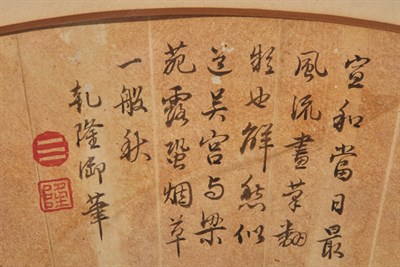 宣和當日最
風流畫草翻
疑也解愁似
道吴宮与梁
苑露蛩烟草
一般秋
乾隆御筆
☰
隆